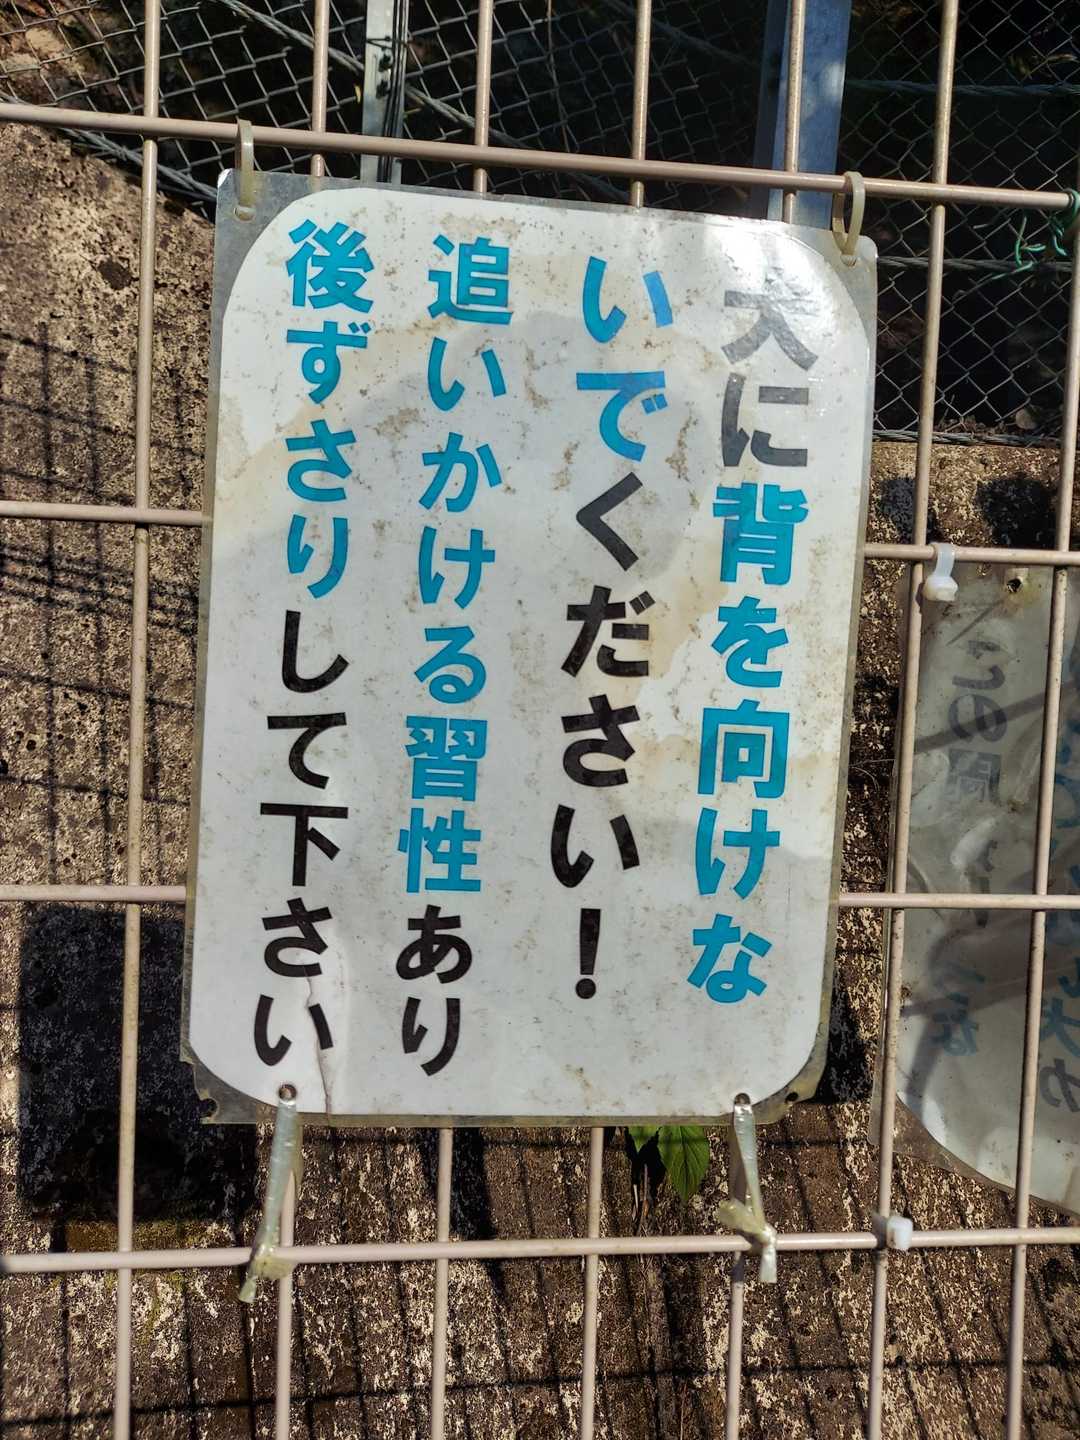 犬に背を向けな
いでください！
追いかける習性あり
後ずさりして下さい